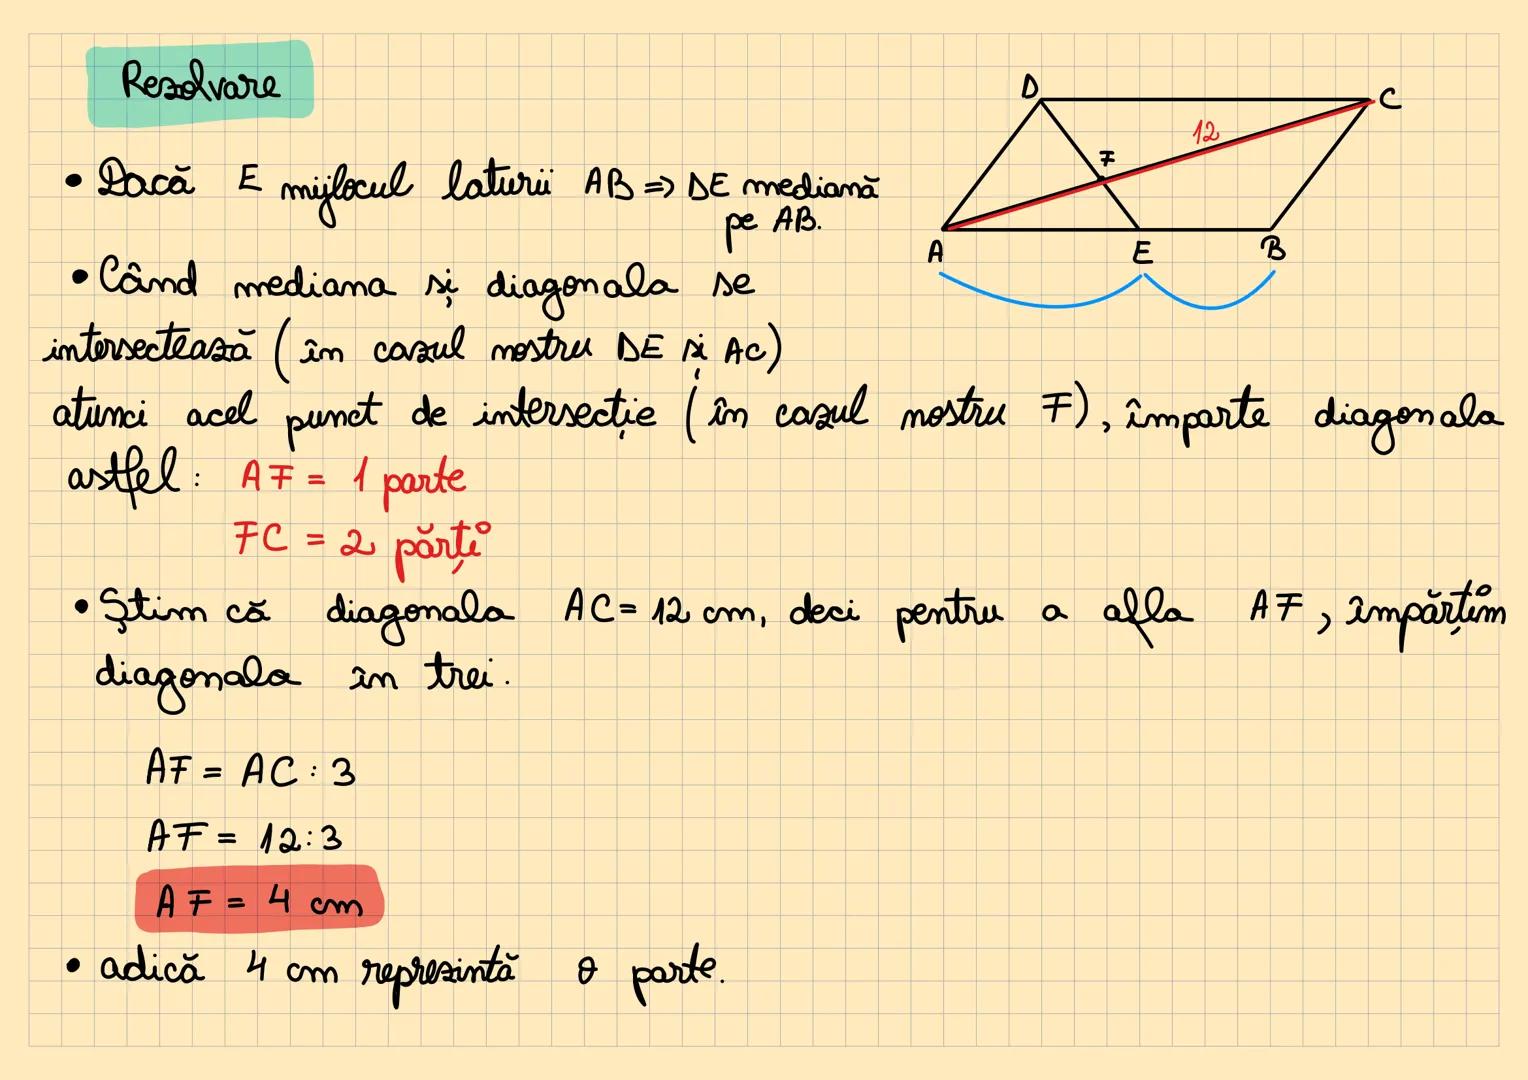 Rezolvare
• Dacă E mijlocul laturii AB => DE mediană
pe AB.
• Când mediana și diagonala se
intersectează (în cazul nostru DE și AC)
atunci acel punct de intersecție (în cazul nostru F), împarte diagonala
astfel: AF = 1 parte
FC = 2 părți
• Știm că diagonala AC = 12 cm, deci pentru a afla AF, împărțim
diagonala în trei.
AF = AC : 3
AF = 12:3
AF = 4 cm
• adică 4 cm reprezintă o parte.
D
C
12
F
A
E
B